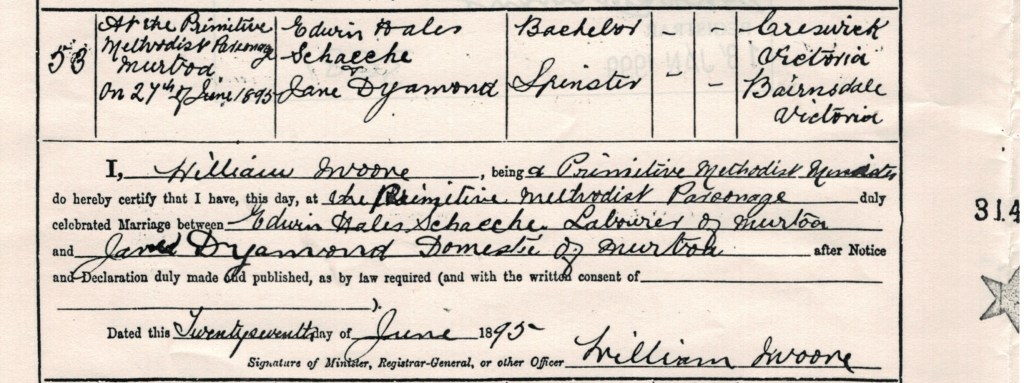 53
At the Primitive Methodist Parsonage Murtoa On 27th of June 1895
Edwin Hales Schaeche & Jane Dyamond
Bachelor - -
Spinster - -
Creswick Victoria
Bairnsdale Victoria
I, William Moore, being a Primitive Methodist Minister
do hereby certify that I have, this day, at the Primitive Methodist Parsonage duly
celebrated Marriage between Edwin Hales Schaeche Labourer of Murtoa
and Jane Dyamond Domestic of Murtoa after Notice
and Declaration duly made and published, as by law required (and with the written consent of
).
Dated this Twentyseventh day of June 1895
Signature of Minister, Registrar-General, or other Officer William Moore
314